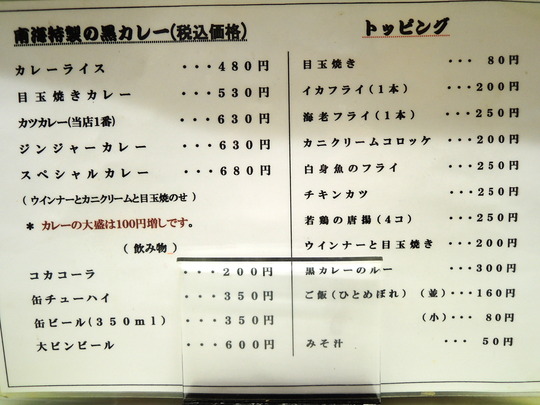 南海特製の黒カレー(税込価格)
カレーライス ・・・480円
目玉焼きカレー ・・・530円
カツカレー(当店1番) ・・・630円
ジンジャーカレー ・・・630円
スペシャルカレー ・・・680円
(ウインナーとカニクリームと目玉焼のせ)
* カレーの大盛は100円増しです。
(飲み物)
コカコーラ ・・・200円
缶チューハイ ・・・350円
缶ビール(350ml) ・・・350円
大ビンビール ・・・600円
トッピング
目玉焼き ・・・80円
イカフライ(1本) ・・・200円
海老フライ(1本) ・・・250円
カニクリームコロッケ ・・・200円
白身魚のフライ ・・・250円
チキンカツ ・・・250円
若鶏の唐揚(4コ) ・・・250円
ウインナーと目玉焼き ・・・200円
黒カレーのルー ・・・300円
ご飯(ひとめぼれ) (並)・・・160円
(小)・・・80円
みそ汁 ・・・50円